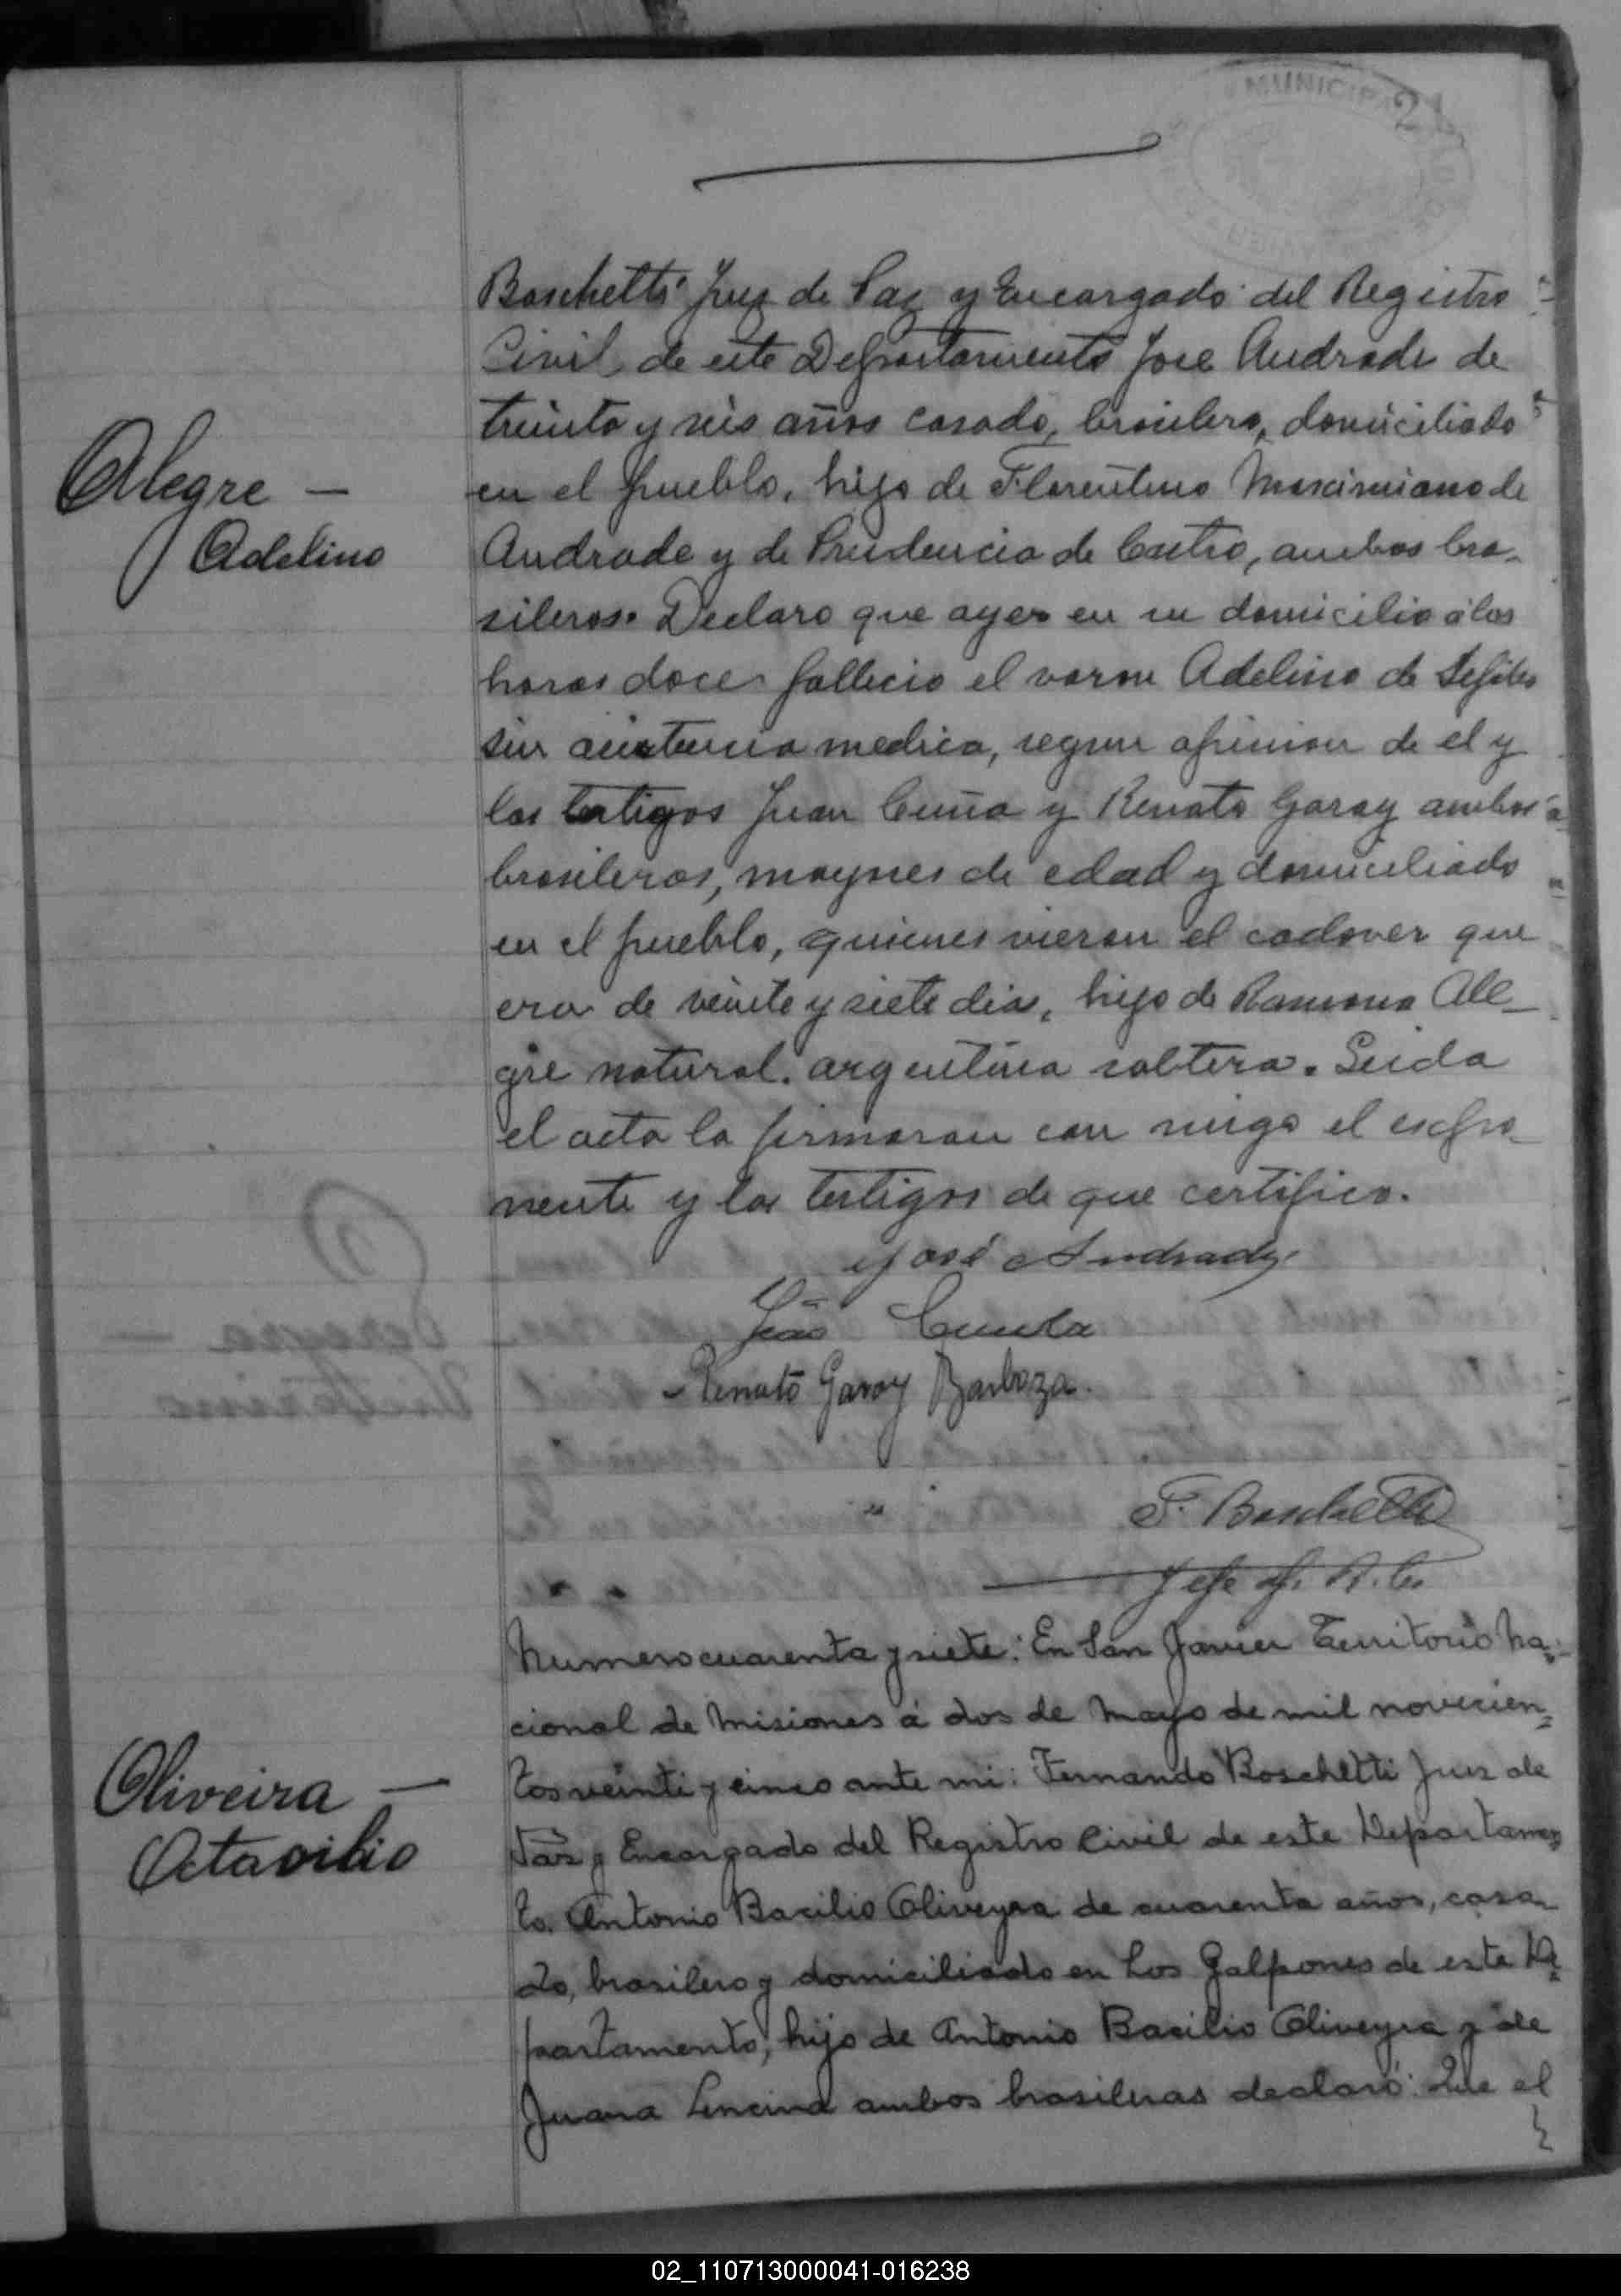 MUNICIPA
21
Boschetti Juez de Paz y Encargado del Registro
Civil de este Departamento Jose Andrade de
treinta y seis años casado, brasilero, domiciliado
en el pueblo, hijo de Florentino Maximiano de
Alegre —
Adelino
Andrade y de Prudencia de Castro, ambos bra-
sileros. Declaro que ayer en su domicilio á las
horas doce fallecio el varon Adelino de
sin asistencia medica, segun opinion de el y
los testigos Juan Cuña y Renato Garay ambos
brasileros, mayores de edad y domiciliado
en el pueblo, quienes vieron el cadaver que
era de veinte y siete dias, hijo de Ramona Ale-
gre natural. argentina soltera. Leida
el acta la firmaron con migo el expo-
nente y los testigos de que certifico.
José Andrade
João Cunha
Renato Garay Barboza.
F. Boschetti
Jefe R. C.
Numero cuarenta y siete: En San Javier Territorio Na-
cional de Misiones á dos de Mayo de mil novecien=
tos veinti y cinco ante mi: Fernando Boschetti Juez de
Oliveira —
Octavilio
Paz y Encargado del Registro Civil de este Departamen=
to. Antonio Bacilio Oliveyra de cuarenta años, casa-
do, brasilero y domiciliado en Los Galpones de este De=
partamento, hijo de Antonio Bacilio Oliveyra y de
Juana Lencina ambos brasileros declaró: Que el
02_110713000041-016238